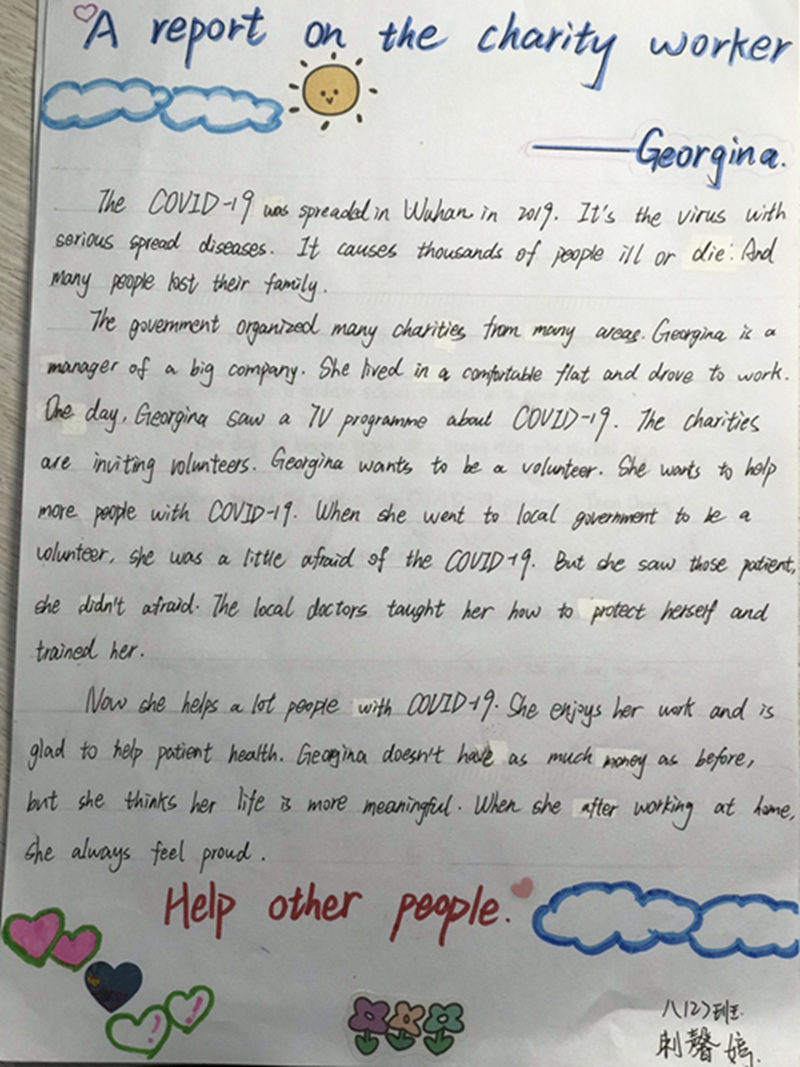 A report on the charity worker
——Georgina.
The COVID-19 was spreaded in Wuhan in 2019. It's the virus with
serious spread diseases. It causes thousands of people ill or die. And
many people lost their family.
The government organized many charities from many areas. Georgina is a
manager of a big company. She lived in a comfortable flat and drove to work.
One day, Georgina saw a TV programme about COVID-19. The charities
are inviting volunteers. Georgina wants to be a volunteer. She wants to help
more people with COVID-19. When she went to local government to be a
volunteer, she was a little afraid of the COVID-19. But she saw those patient,
she didn't afraid. The local doctors taught her how to protect herself and
trained her.
Now she helps a lot people with COVID-19. She enjoys her work and is
glad to help patient health. Georgina doesn't have as much money as before,
but she thinks her life is more meaningful. When she after working at home,
she always feel proud.
Help other people.
八(2)班
馨